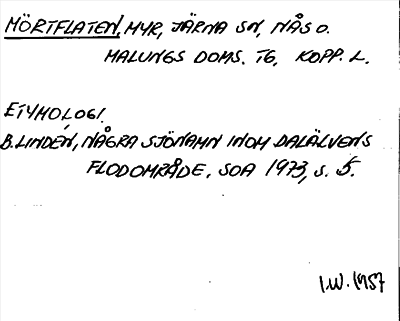 MÖRTFLATEN, MYR, JÄRNA SN, NÅS O.
MALUNGS DOMS. TG, KOPP. L.
ETYMOLOGI.
B. LINDÉN, NÅGRA SJÖNAMN INOM DALÄLVENS
FLODOMRÅDE, SOA 1973, S. 5.
I.W. 1957